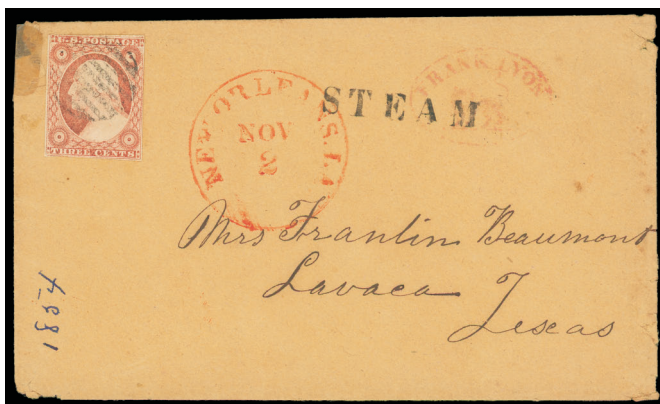 U.S. POSTAGE
THREE CENTS
NEW ORLEANS. LA
NOV
2
STEAM
FRANK LYON
Mrs Franlin Beaumont
Lavaca
Texas
1854